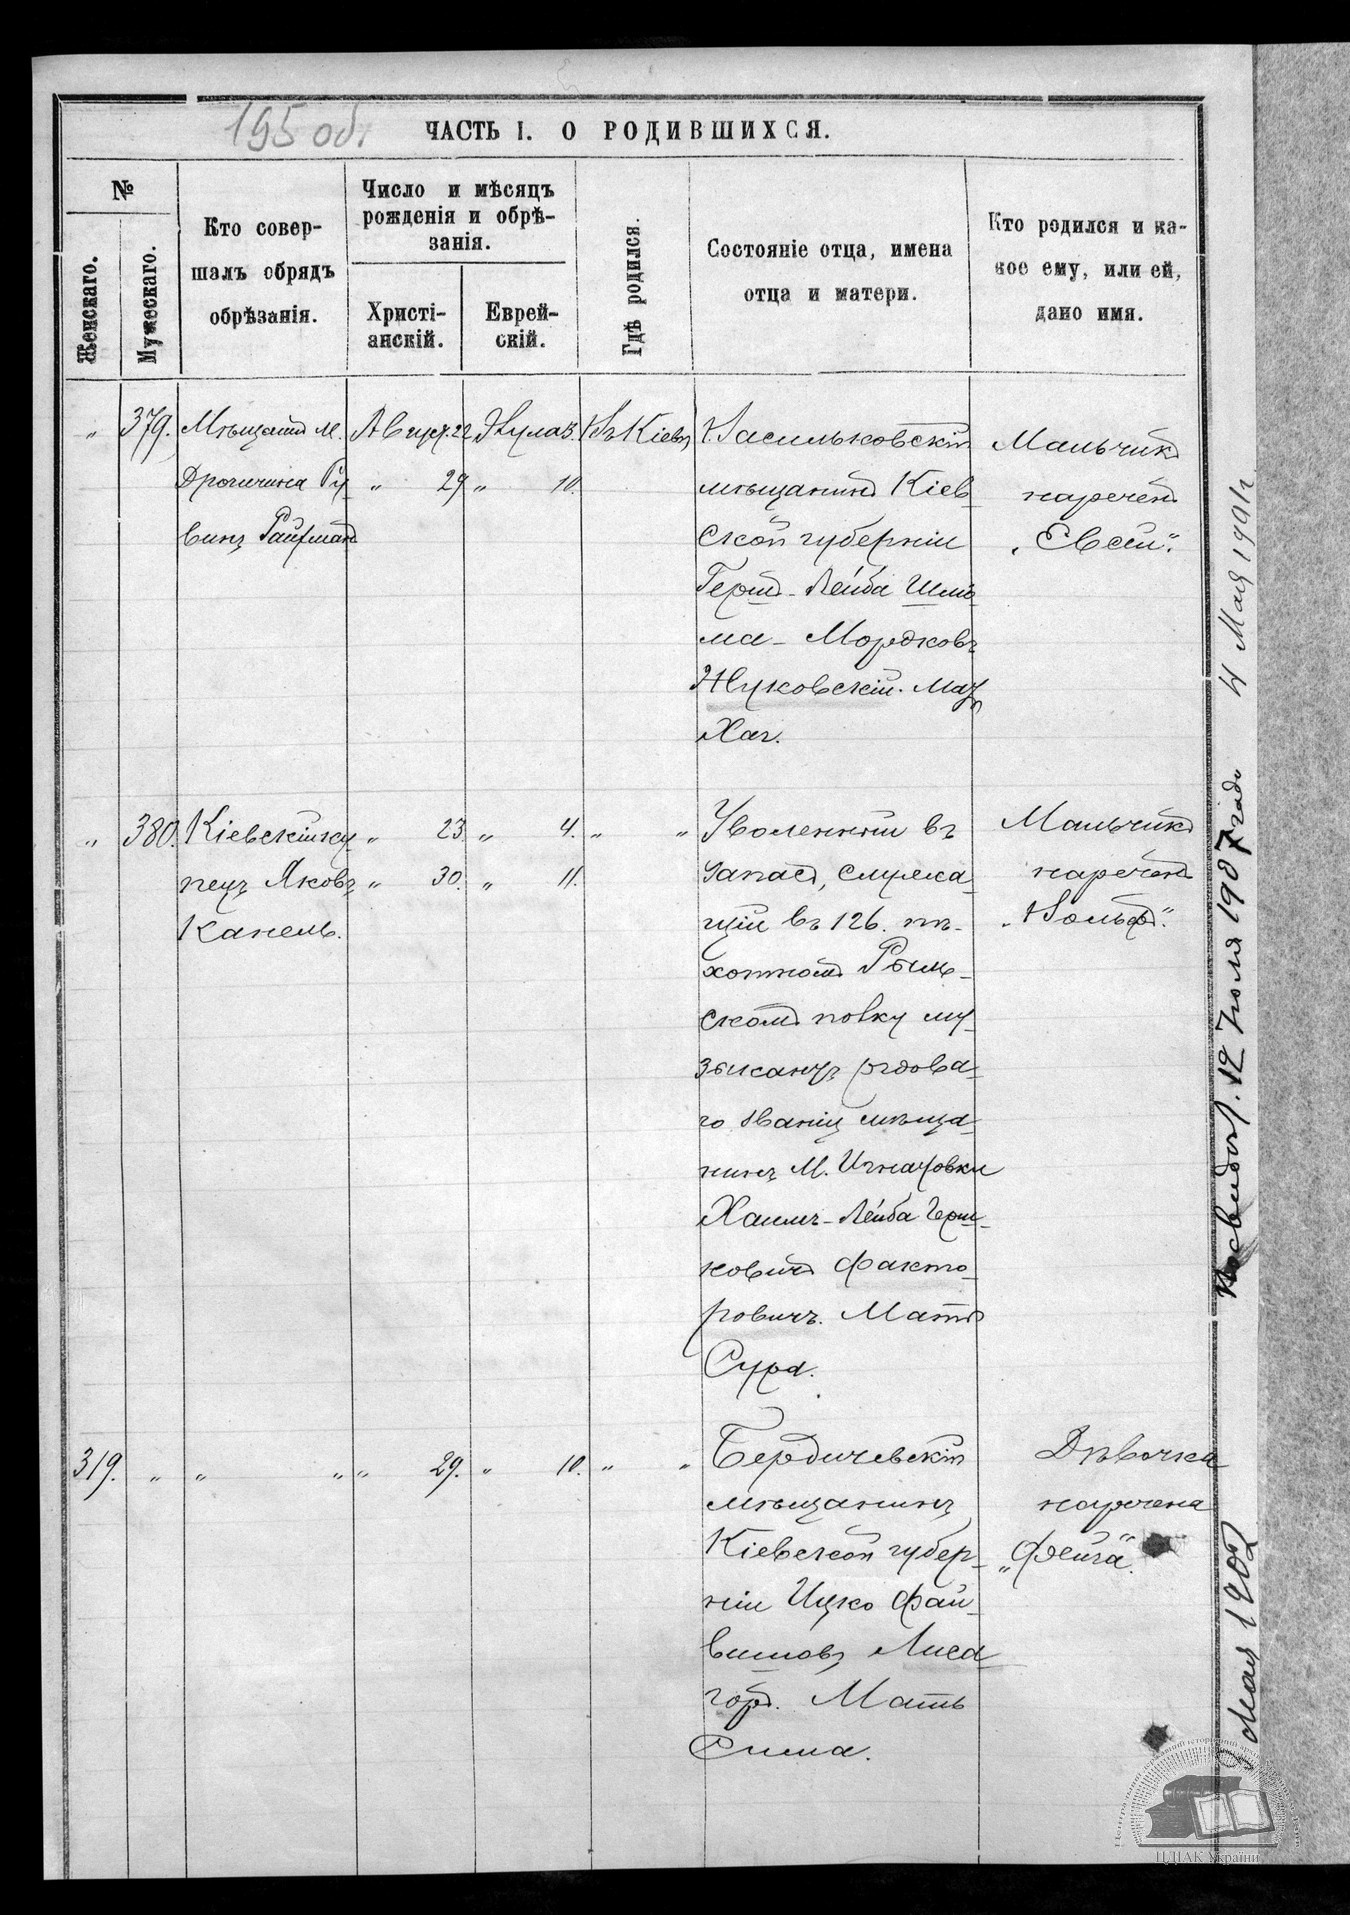 195 об.
ЧАСТЬ I. О РОДИВШИХСЯ.
№
Женскаго.
Мужескаго.
Кто совер-
шалъ обрядъ
обрѣзанія.
Число и мѣсяцъ
рожденія и обрѣ-
занія.
Христі-
анскій.
Еврей-
скій.
Гдѣ родился.
Состояніе отца, имена
отца и матери.
Кто родился и ка-
кое ему, или ей,
дано имя.
„ 379.
Мѣщанин м.
Дрогичина Ру
винъ Райзман
Август. 22
„ 29
Элула 3.
„ 10.
Въ Кіевѣ
Васильковскій
мѣщанинъ Кіев
ской губерніи
Герш-Лейба Шлио
ма-Мордковъ
Жуковскій. Мать
Хая.
Мальчикъ
нареченъ
„Евсей".
„ 380.
Кіевскій ку
пецъ Яковъ
Канель.
„ 23
„ 30.
„ 4.
„ 11.
„ „
Уволенный въ
запасъ, служа-
щій въ 126. пѣ-
хотномъ Рыль-
скомъ полку му-
зыкантъ рядова-
го званія мѣща-
нинъ М. Игнатовки
Хаимъ-Лейба Герш-
ковичъ Факто-
ровичъ. Мать
Сура.
Мальчикъ
нареченъ
„Вольф".
319. „
„ „
„ 29.
„ 10.
„ „
Бердичевскій
мѣщанинъ
Кіевской губер-
ніи Ицко Фай-
вишовъ Лиса-
гор. Мать
Сима.
Дѣвочка
наречена
„Фейга".
4 Мая 1991г
12 Іюля 1907 года
мая 1902
ЦДІАК України